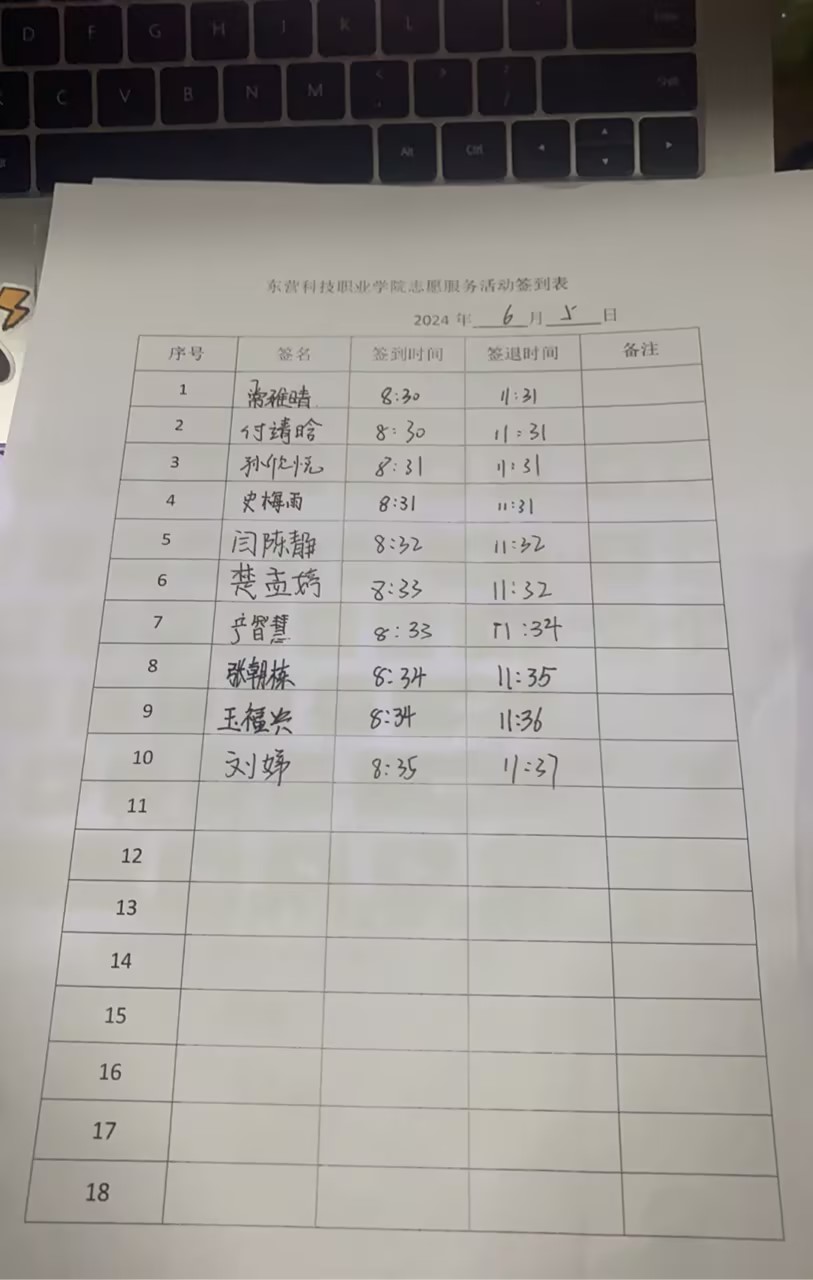 D F G H J K L
C V B N M < , > ? / Shift
Alt Ctrl
东营科技职业学院志愿服务活动签到表
2024 年 6 月 5 日
序号 签名 签到时间 签退时间 备注
1 常雅晴 8:30 11:31
2 付靖晗 8:30 11:31
3 孙欣悦 8:31 11:31
4 史梅雨 8:31 11:31
5 闫陈静 8:32 11:32
6 楚孟婷 8:33 11:32
7 智慧 8:33 11:34
8 张朝栋 8:34 11:35
9 王福兴 8:34 11:36
10 刘娣 8:35 11:37
11
12
13
14
15
16
17
18